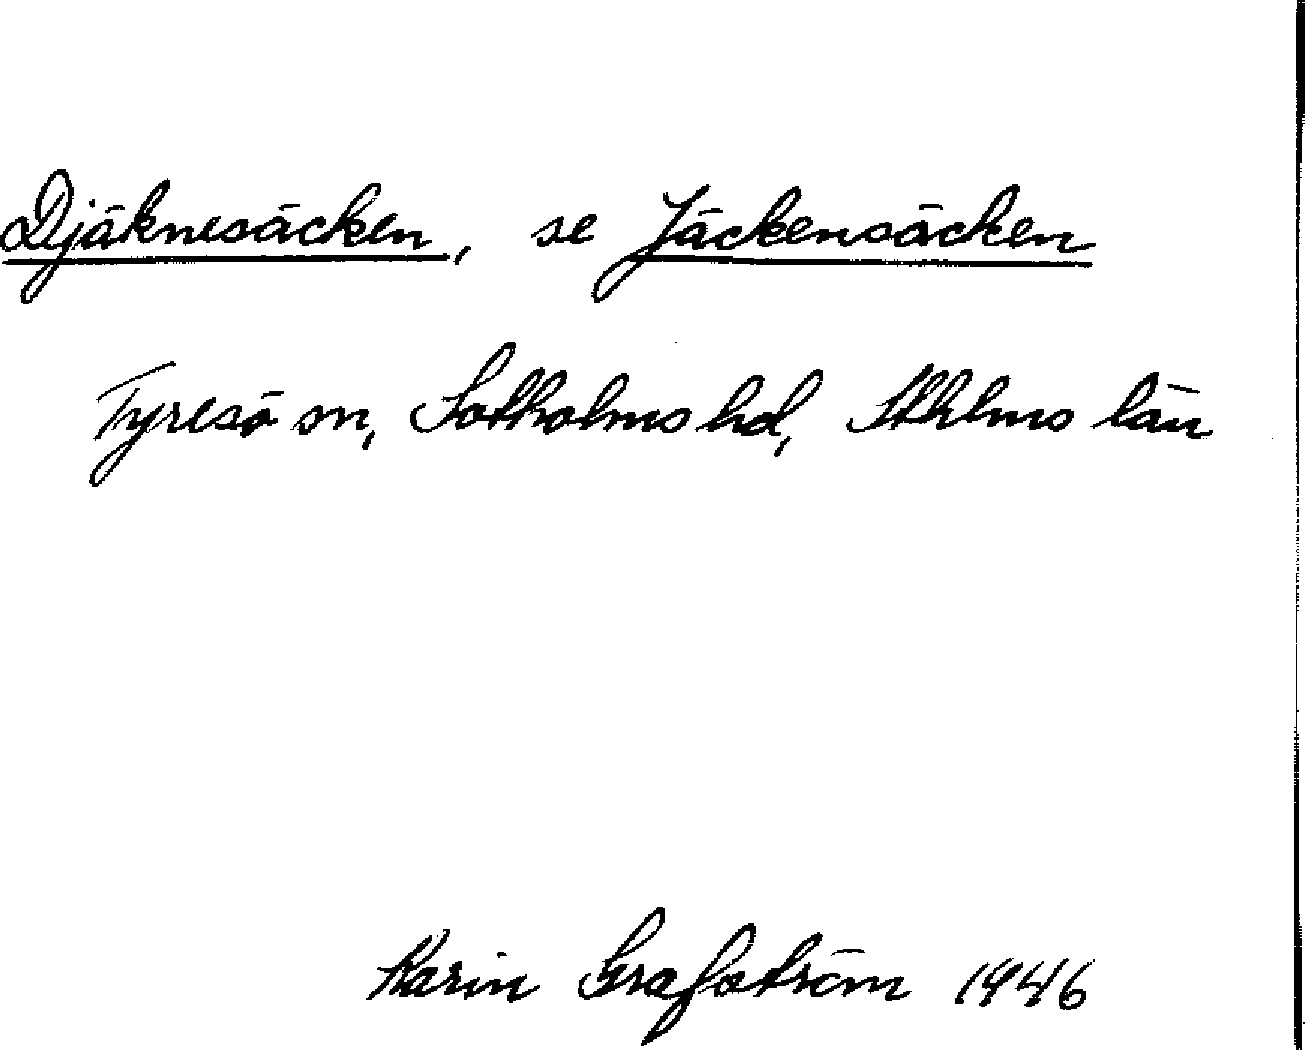 Djäknesäcken, se Jäckensäcken
Tyresö sn, Sotholms hd, Sthlms län
Karin Grafström 1946